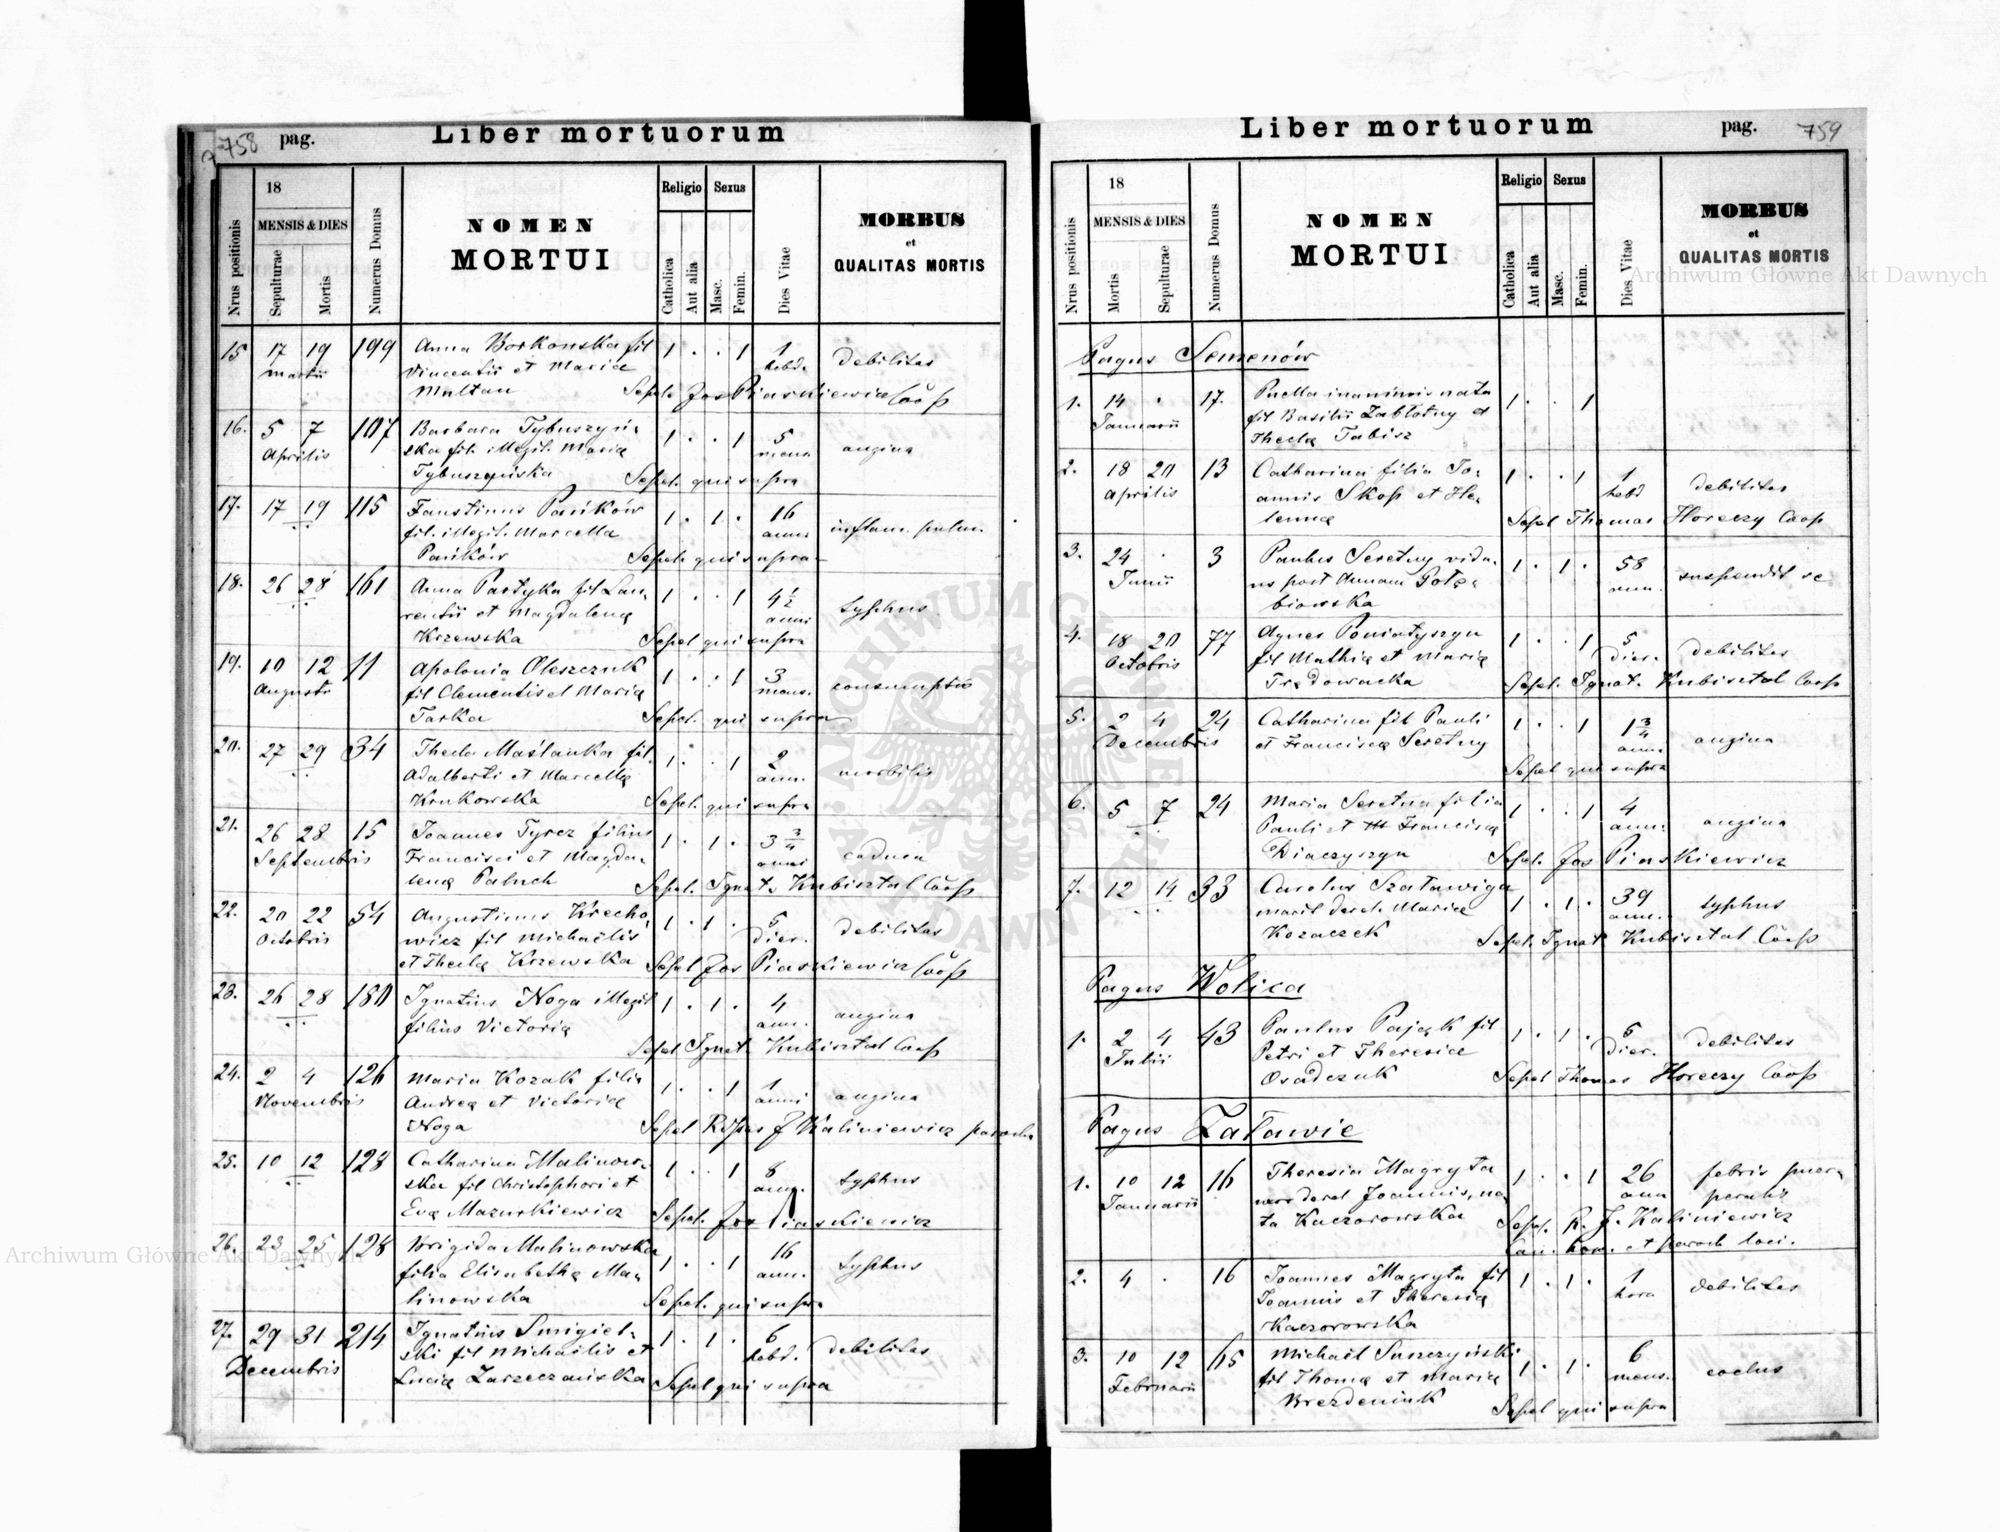 758 pag. Liber mortuorum
18
Religio Sexus
MENSIS & DIES
Nrus positionis
Sepulturae
Mortis
Numerus Domus
NOMEN
MORTUI
Catholica
Aut alia
Masc.
Femin.
Dies Vitae
MORBUS
et
QUALITAS MORTIS
15 17 19 199 Anna Borkonska fil 1 . . 1 1 debilitas
Martii Vincentii et Maria hebd.
Multan Sepel. Jos Piaskiewicz Coop
16. 5 7 107 Barbara Tybuszyń- 1 . . 1 5 angina
Aprilis ska fil. illegit. Maria mens
Tybuszyńska Sepel. qui supra
17. 17 19 115 Faustinus Pańków 1 . 1 . 16 inflam. pulm.
fil. illegit. Marcella ann.
Pańków Sepel. qui supra
18. 26 28 161 Anna Partyka fil Lau- 1 . . 1 4 1/2 typhus
rentii et Magdalena anni
Krzewska Sepel qui supra
19. 10 12 11 Apolonia Oleszczuk 1 . . 1 3
Augusti fil Clementis et Maria mens.
Tarka Sepel. qui supra
20. 27 29 34 Thecla Maślanka fil. 1 . . 1 2 morbilis
Adalberti et Marcella ann.
Krukowska Sepel. qui supra
21. 26 28 15 Joannes Tyrcz filius 1 . 1 . 3 3/4 caduca
Septembris Francisci et Magda- anni
lena Paluch Sepel. Ignat. Kubisztal Coop
22. 20 22 54 Augustinus Krecho- 1 . 1 . 5 debilitas
Octobris wicz fil Michaelis dier.
et Thecla Krzewska Sepel Jos Piaskiewicz Coop
23. 26 28 180 Ignatius Noga illegit 1 . 1 . 4 angina
filius Victoria ann.
Sepel Ignat. Kubisztal Coop
24. 2 4 126 Maria Kozak filia 1 . . 1 1 angina
Novembris Andrea et Victoria anni
Noga Sepel J Kaliniewicz
25. 10 12 128 Catharina Malinow- 1 . . 1 8 typhus
ska fil Christophori et ann.
Eva Mazurkiewicz Sepel. Jos Piaskiewicz
26. 23 25 128 Brigida Malinowska 1 . . 1 16 typhus
filia Elisabetha Ma- ann.
linowska Sepel. qui supra
27. 29 31 214 Ignatius Smigiel- 1 . 1 . 6 debilitas
Decembris ski fil Michaelis et hebd.
Lucia Zarzeczańska Sepel qui supra
Liber mortuorum pag. 759
18
Religio Sexus
MENSIS & DIES
Nrus positionis
Mortis
Sepulturae
Numerus Domus
NOMEN
MORTUI
Catholica
Aut alia
Masc.
Femin.
Dies Vitae
MORBUS
et
QUALITAS MORTIS
Pagus Semenów
1. 14 . 17. Puella inanimis nata 1 . 1
Januarii fil Basilii Zabłotny et
Thecla Tabisz
2. 18 20 13 Catharina filia Jo- 1 . . 1 1 debilitas
Aprilis annis Skop et He- hebd
lenna Sepel Thomas Horeczy Coop
3. 24 . 3 Paulus Seretny vidu- 1 . 1 . 58 suspendit se
Junii us post Annam Gołę- ann.
biowska
4. 18 20 77 Agnes Poniatyszyn 1 . . 1 5 debilitas
Octobris fil Mathia et Maria dier.
Tredowacka Sepel. Ignat. Kubisztal Coop
5. 2 4 24 Catharina fil Pauli 1 . . 1 1 3/4 angina
Decembris et Francisca Seretny ann.
Sepel qui supra
6. 5 7 24 Maria Seretna filia 1 . . 1 4 angina
Pauli et Francisca ann.
Diaczyszyn Sepel. Jos Piaskiewicz
7. 12 14 33 Carolus Szaławiga 1 . 1 . 39 typhus
marit derel. Maria ann.
Kozaczek Sepel. Ignat Kubisztal Coop
Pagus Wolica
1. 2 4 43 Paulus Pająk fil 1 . 1 . 5 debilitas
Julii Petri et Theresia dier.
Osadczuk Sepel Thomas Horeczy Coop
Pagus Załawie
1. 10 12 16 Theresia Magryta 1 . . 1 26 febris puer-
Januarii derel Joannis, na- ann peralis
ta Kaczorowska Sepel. R. J. Kaliniewicz
Can. hon. et paroch loci.
2. 4 . 16 Joannes Magryta fil 1 . 1 . 1 debilitas
Joannis et Theresia hora
Kaczorowska
3. 10 12 65 Michael Suszczyński 1 . 1 . 6
Februarii fil Thoma et Maria mens.
Brezdeniuk Sepel qui supra
Archiwum Główne Akt Dawnych
Archiwum Główne Akt Dawnych
ARCHIWUM GŁÓWNE AKT DAWNYCH